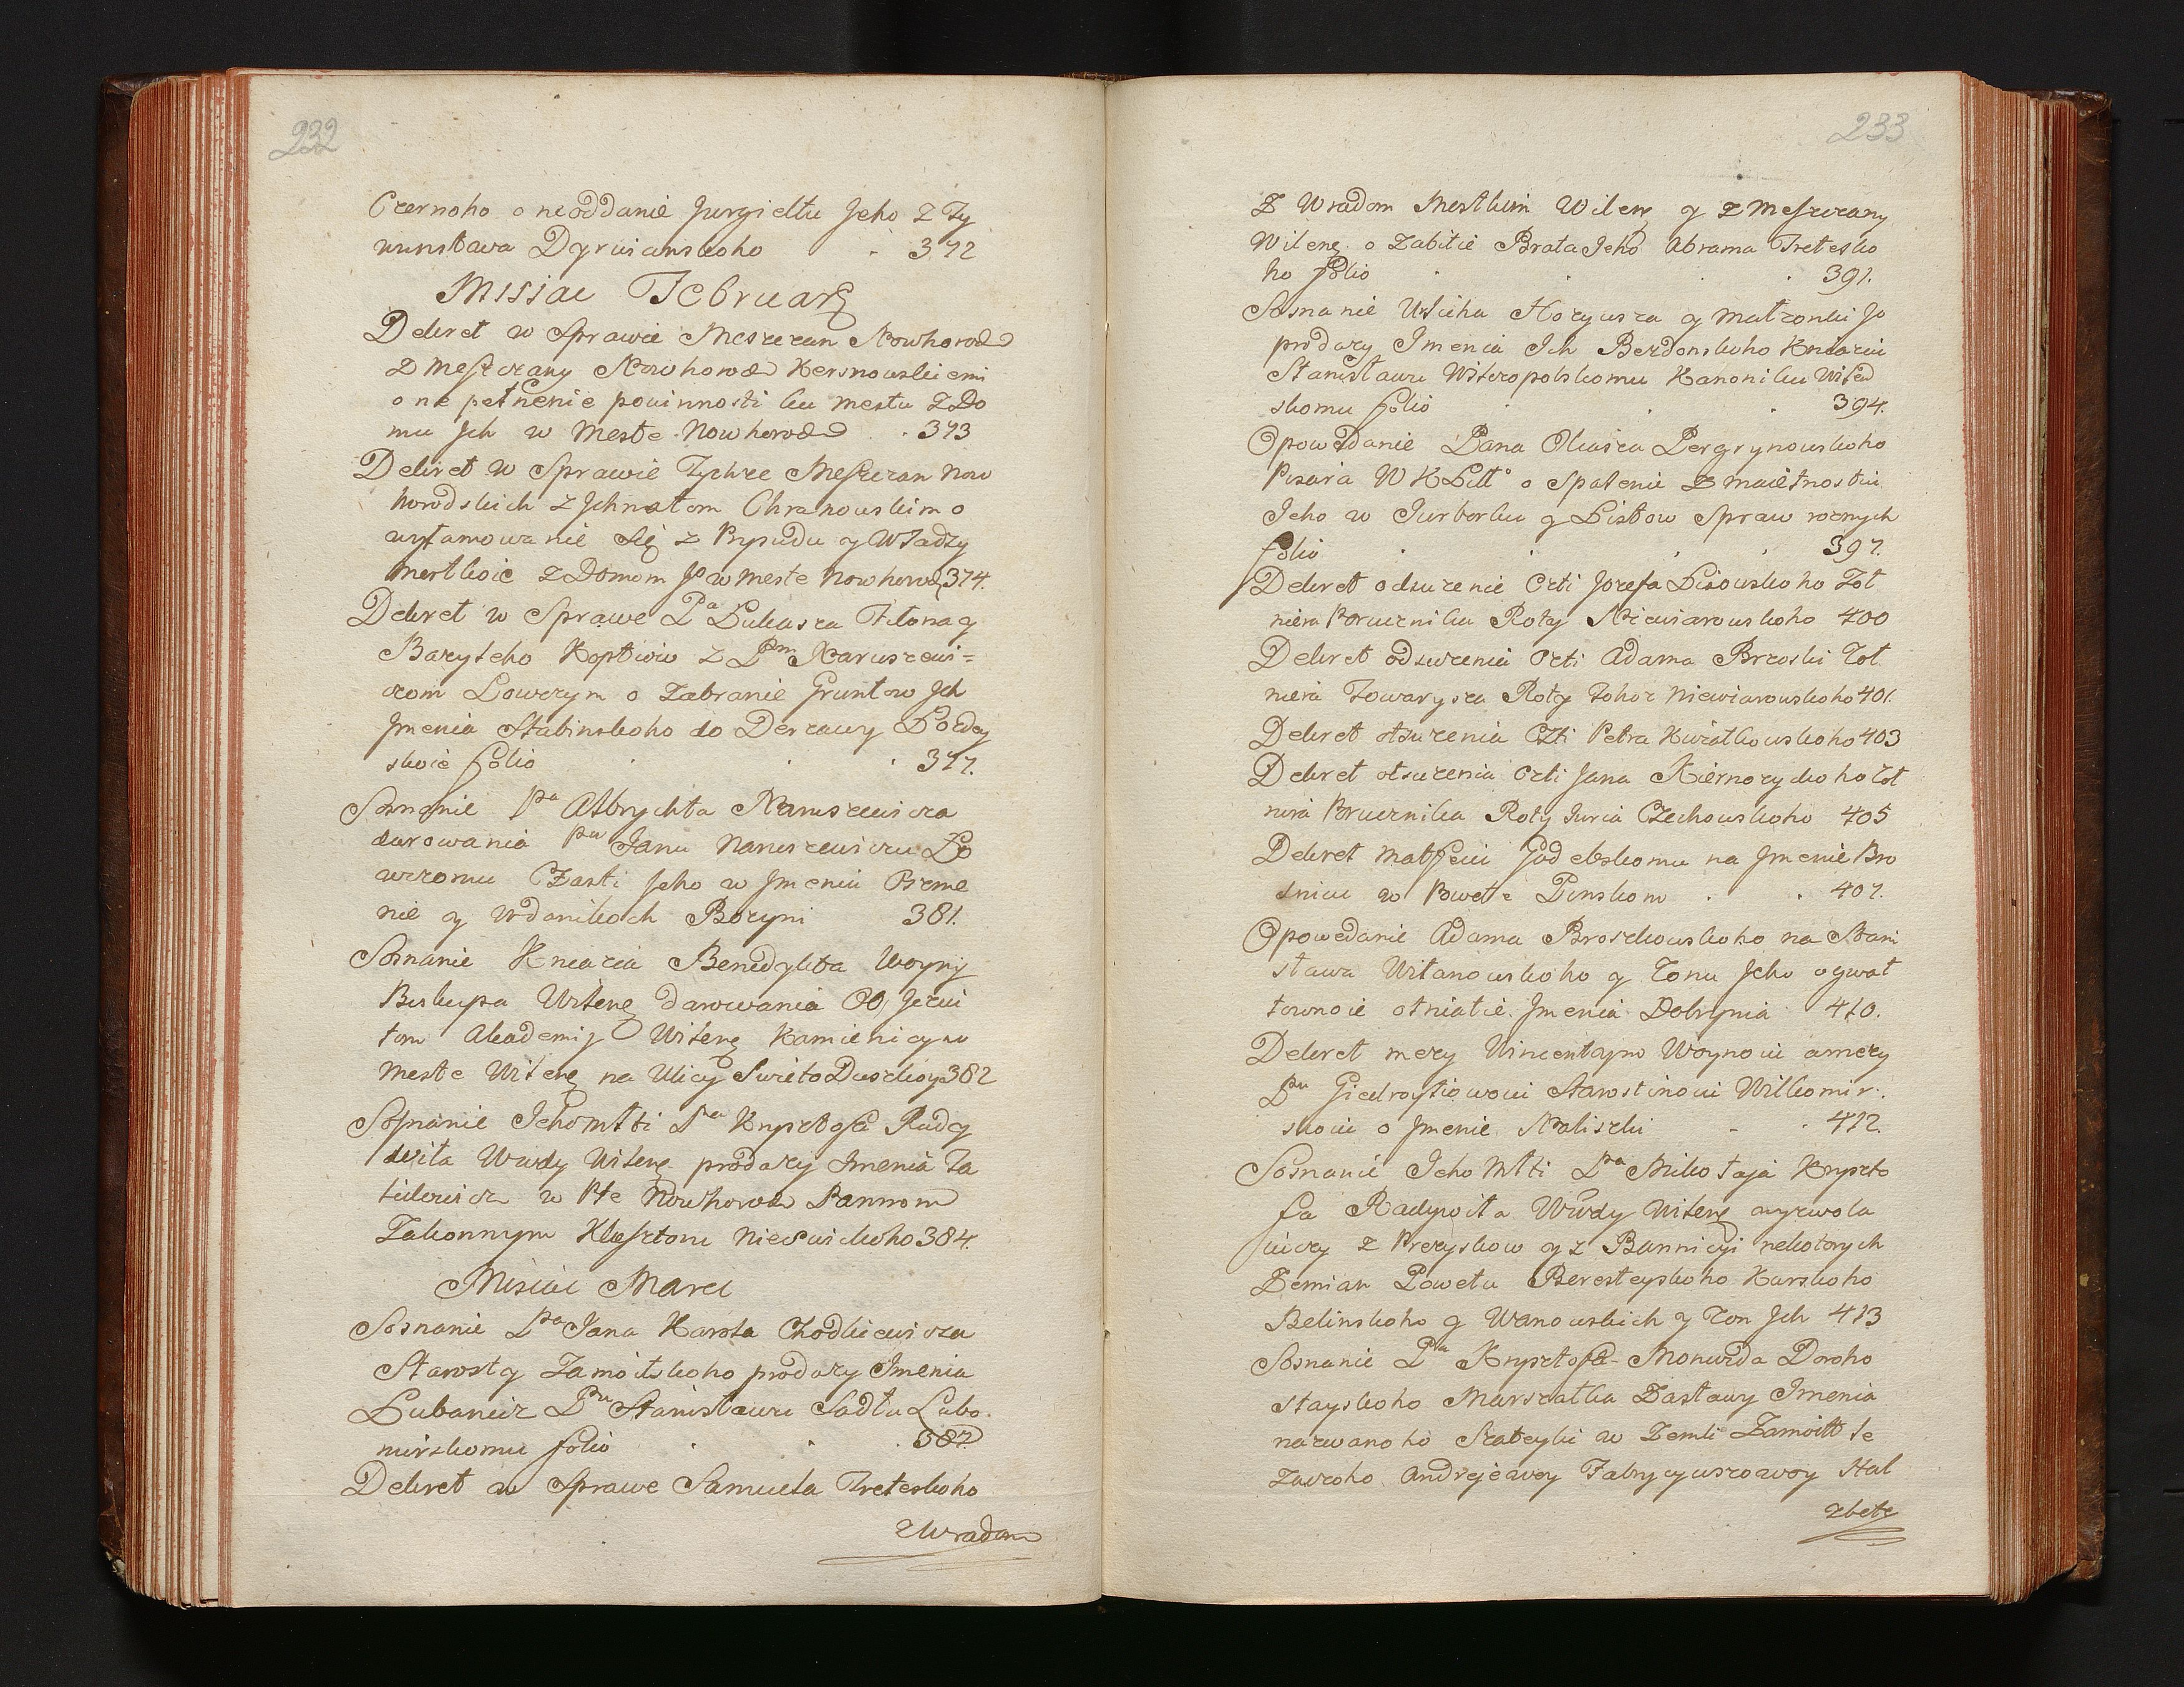 232
Czernoho o neoddanie Jurgieltu Jeho z Ty
wunstwa Dyrwianskoho . 372
Misiac February
Dekret w Sprawie Meszczan Nowhorod
z Meszczany Nowhorod Kersnowskiemi
o ne pełnenie powinnosti ku mestu z Do
mu Jch w Meste Nowhorod . 373
Dekret w Sprawie Tychże Meszczan Now
horodskich z Jhnatom Chranowskim o
wyłamowanie się z Prysudu y Władzy
mestkoie z Domom Jo w meste Nowhorod 374.
Dekret w Sprawe Pa Łukasza Filona y
Baryłeho Koptiow z Pm Naruszewi=
czom Łowczym o zabranie Gruntow Jch
Jmenia Stabinskoho do Derzawy
skoie folio . . . 377.
Soznanie Pa Albrychta Naruszewicza
darowania Pu Janu Naruszewiczu Ło
wczomu Czasti Jeho w Jmeniu Preme
nie y Wdanikoch Bozyni 381.
Soznanie Kniazia Benedykta Woyny
Biskupa Wilenę darowania OO Jezui
tom Akademij Wilenę Kamienicy w
meste Wilenę na Ulicy Swieto Duskoy 382
Soznanie Jehomłti Pa Krysztofa Rady
wiła Wwdy Wilenę prodazy Jmenia Za
w Pte Nowhorod Pannom
Zakonnym Klasztoru Nieswizkoho 384.
Misiac Marca
Soznanie Pa Jana Karola Chodkiewicza
Starosty Zamoitskoho prodazy Jmenia
Łubanicz Pu Stanisławu Sadłu Lubo
mirskomu folio . . . 387.
Dekret w Sprawe Samuela Treteskoho
z Wradom
233
Z Wradom Mestkim Wilenę y z Meszczany
Wilenę o zabitie Brata Jeho Abrama Tretesko
ho folio . . . 391.
Soznanie Ulicha Hozyusza y Matzonki Jo
prodazy Jmenia Jch Bezdonskoho Kniaziu
Stanisławu Witeropolskomu Kanoniku Wilen
skomu folio . . . 394.
Opowedanie Pana Oliasza Pergrynowskoho
Pisara WKLitt° o Spalenie z maietnostiu
Jeho w Jurborku y Listow Spraw roznych
folio . . . . 397.
Dekret odsuzenie Czti Jozefa Lisowskoho Żoł
niera Porucznika Roty Niewiarowskoho 400
Dekret odsuzenia Czti Adama Brzoski Żoł
niera Towarysza Roty Tohoż Niewiarowskoho 401.
Dekret otsuzenia Czti Petra Kwiatkowskoho 403
Dekret otsuzenia Czti Jana Kiernozyckoho Żoł
nira Porucznika Roty Juria Czechowskoho 405
Dekret Matfeiu Godebskomu na Jmenie Bro
dnicu w Powete Pinskom . . 407.
Opowedanie Adama Broschowskoho na Stani
sława Witanowskoho y Żonu Jeho o gwał
townoie otniatie Jmenia Dobrynia 410.
Dekret mezy Wincentajm Woynoiu a mezy
Pu Giedroytiowoiu Starostinoiu Wilkomir.
skoiu o Jmenie Maliszki - . 412.
Soznanie Jeho Młti Pa Mikołaja Kryszto
fa Radywiła Wwdy Wilenę wyzwola
iuczy z Prezyskow y z Bannicyi nekotorych
Zemian Powetu Beresteyskoho Karskoho
Belinskoho y Wanowskich y Żon Jch 413
Soznanie Pa Krysztofa Monwida Doroho
stayskoho Marszałka Zastawy Jmenia
nazwanoho w Zemli Zamoitt Se
zawzoho Andrejewoy Fabrycyuszowoy Stal
zbety